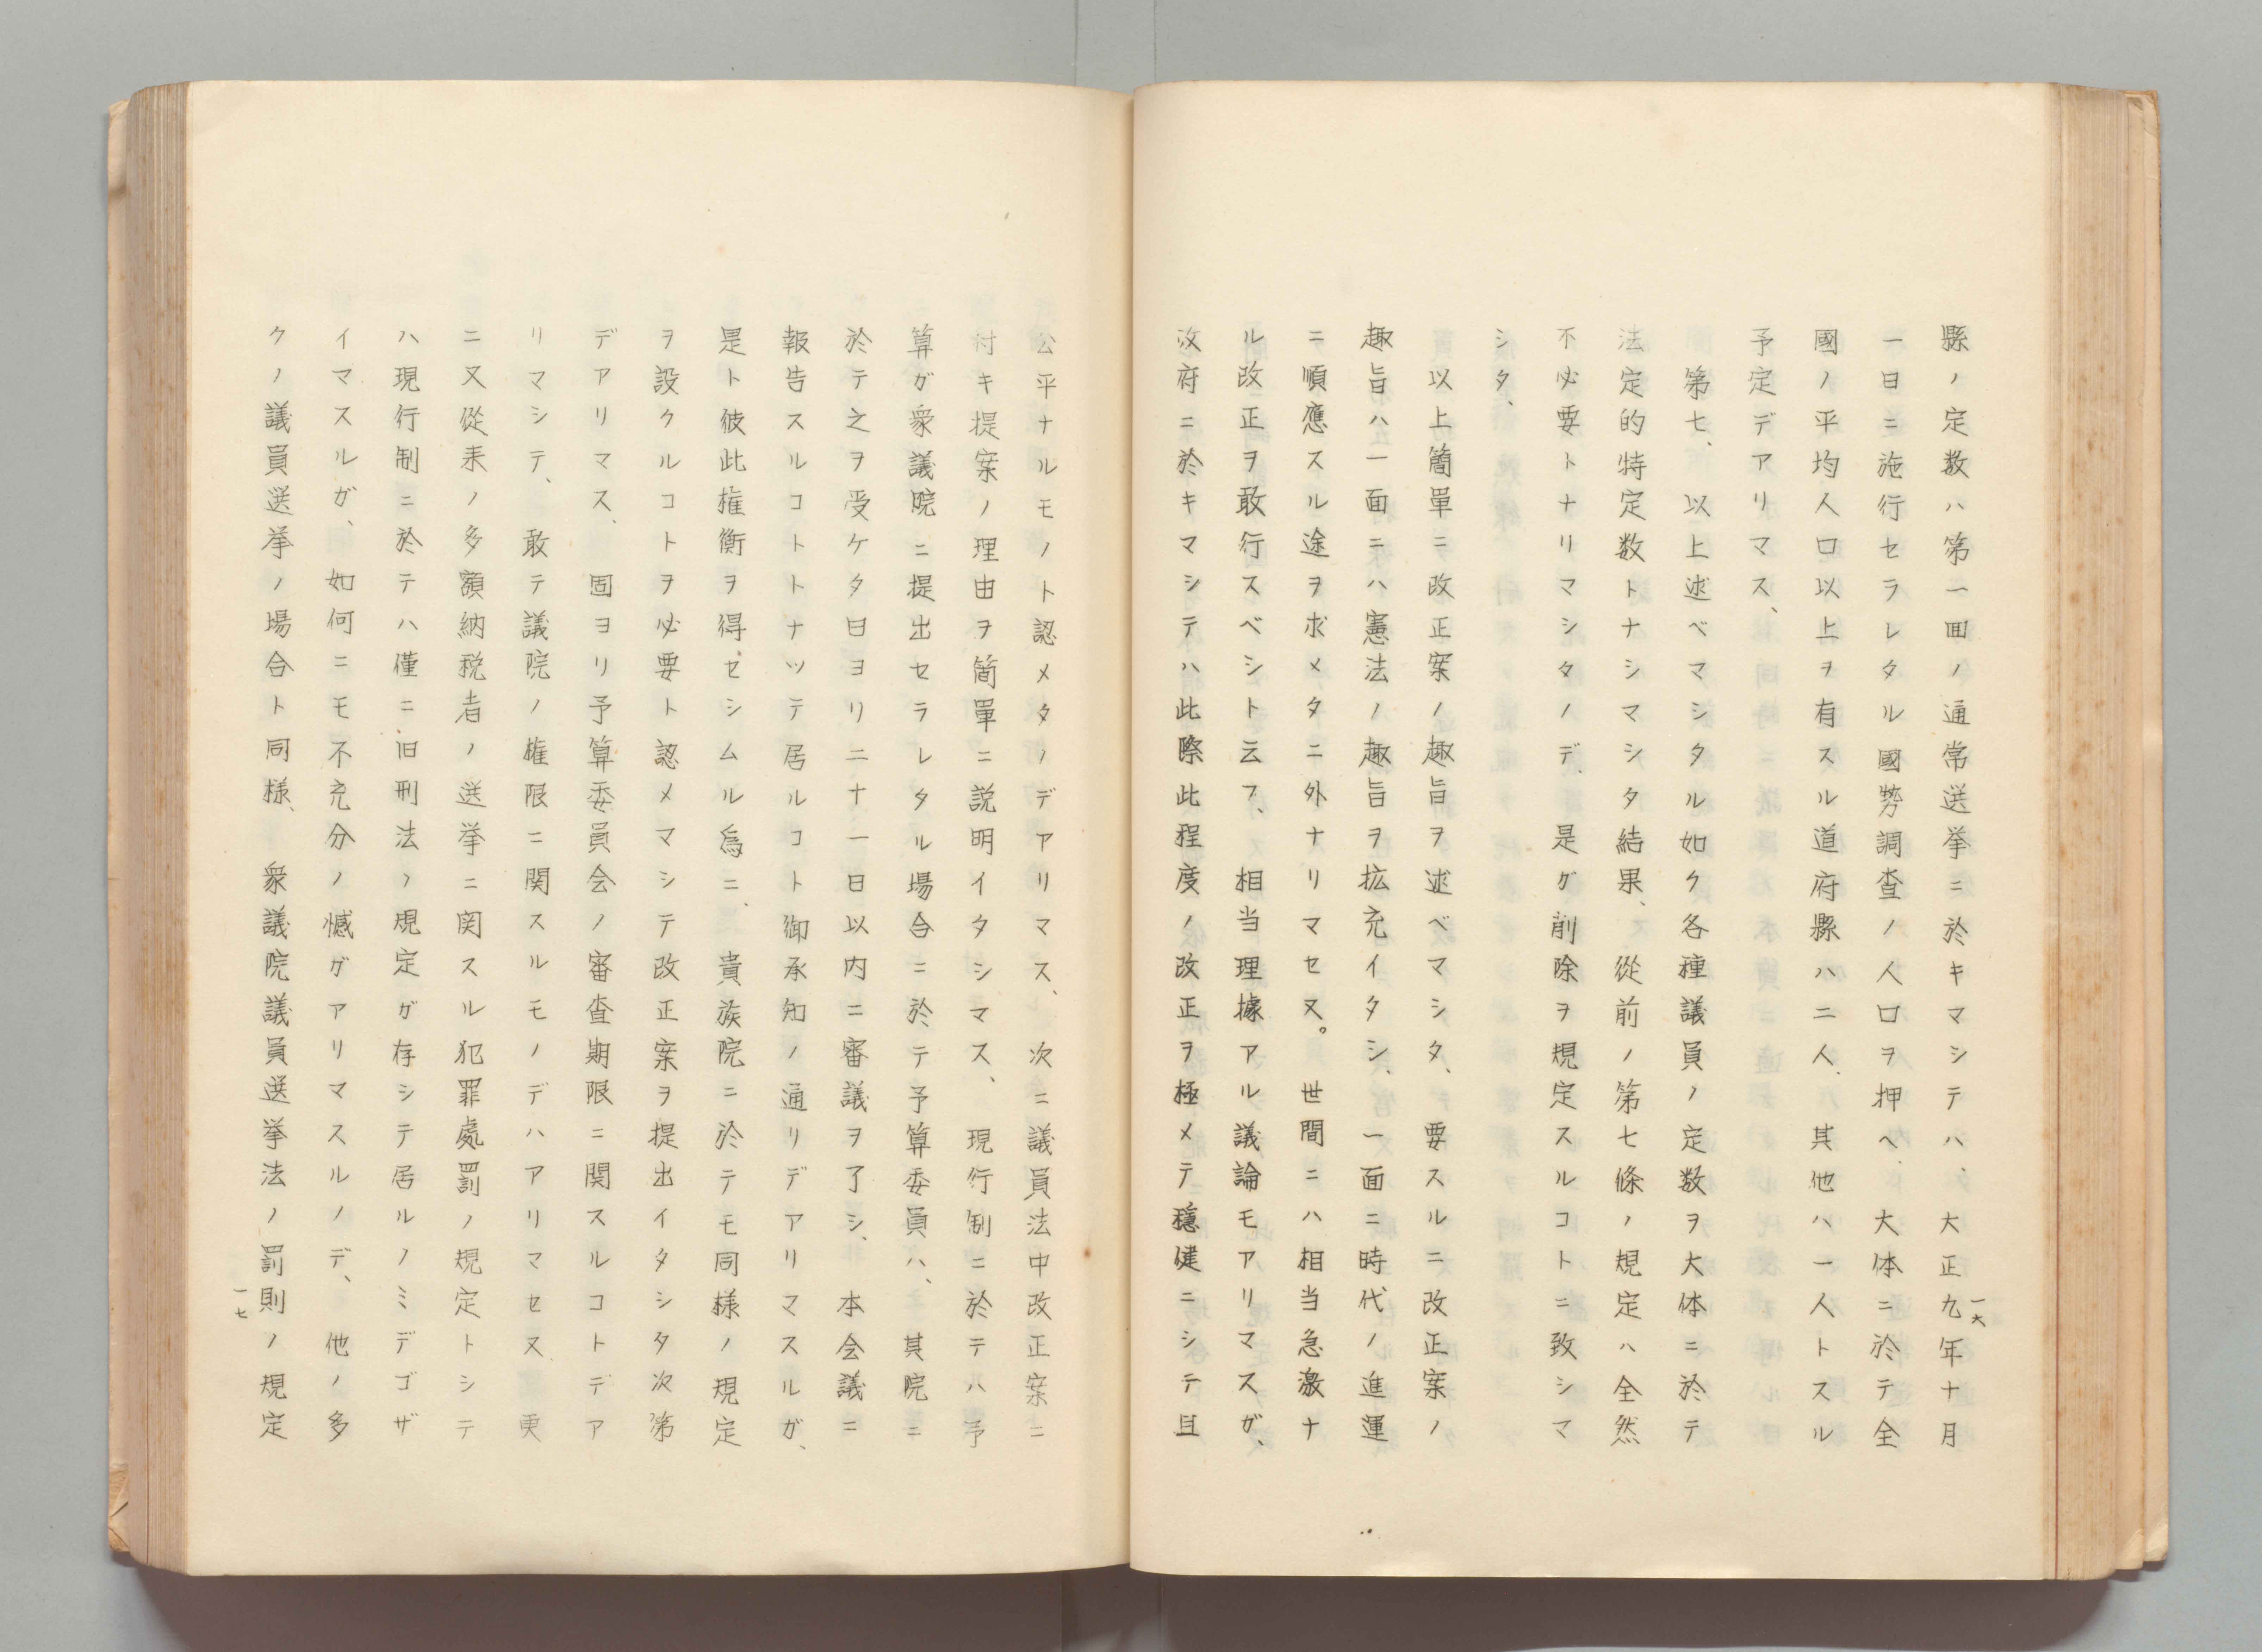 縣ノ定数ハ第一囬ノ通常選挙ニ於キマシテハ、大正九年十月
一日ニ施行セラレタル國勢調査ノ人口ヲ押ヘ、大体ニ於テ全
國ノ平均人口以上ヲ有スル道府縣ハ二人、其他ハ一人トスル
予定デアリマス、
第七、以上述ベマシタル如ク各種議員ノ定数ヲ大体ニ於テ
法定的特定数トナシマシタ結果、從前ノ第七條ノ規定ハ全然
不必要トナリマシタノデ、是ガ削除ヲ規定スルコトニ致シマ
シタ、
以上簡單ニ改正案ノ趣旨ヲ述ベマシタ、要スルニ改正案ノ
趣旨ハ一面ニハ憲法ノ趣旨ヲ拡充イタシ、一面ニ時代ノ進運
ニ順應スル途ヲ求メタニ外ナリマセヌ。世間ニハ相当急激ナ
ル改正ヲ敢行スベシト云フ、相当理據アル議論モアリマスガ、
政府ニ於キマシテハ此際此程度ノ改正ヲ極メテ穏健ニシテ且
一六
公平ナルモノト認メタノデアリマス、次ニ議員法中改正案ニ
付キ提案ノ理由ヲ簡單ニ説明イタシマス、現行制ニ於テハ予
算ガ衆議院ニ提出セラレタル場合ニ於テ予算委員ハ、其院ニ
於テ之ヲ受ケタ日ヨリ二十一日以内ニ審議ヲ了シ、本会議ニ
報告スルコトトナツテ居ルコト御承知ノ通リデアリマスルガ、
是ト彼此権衡ヲ得セシムル爲ニ、貴族院ニ於テモ同様ノ規定
ヲ設クルコトヲ必要ト認メマシテ改正案ヲ提出イタシタ次第
デアリマス、固ヨリ予算委員会ノ審査期限ニ関スルコトデア
リマシテ、敢テ議院ノ権限ニ関スルモノデハアリマセヌ、更
ニ又從来ノ多額納税者ノ選挙ニ関スル犯罪處罰ノ規定トシテ
ハ現行制ニ於テハ僅ニ旧刑法ノ規定ガ存シテ居ルノミデゴザ
イマスルガ、如何ニモ不充分ノ憾ガアリマスルノデ、他ノ多
クノ議員選挙ノ場合ト同様、衆議院議員選挙法ノ罰則ノ規定
一七